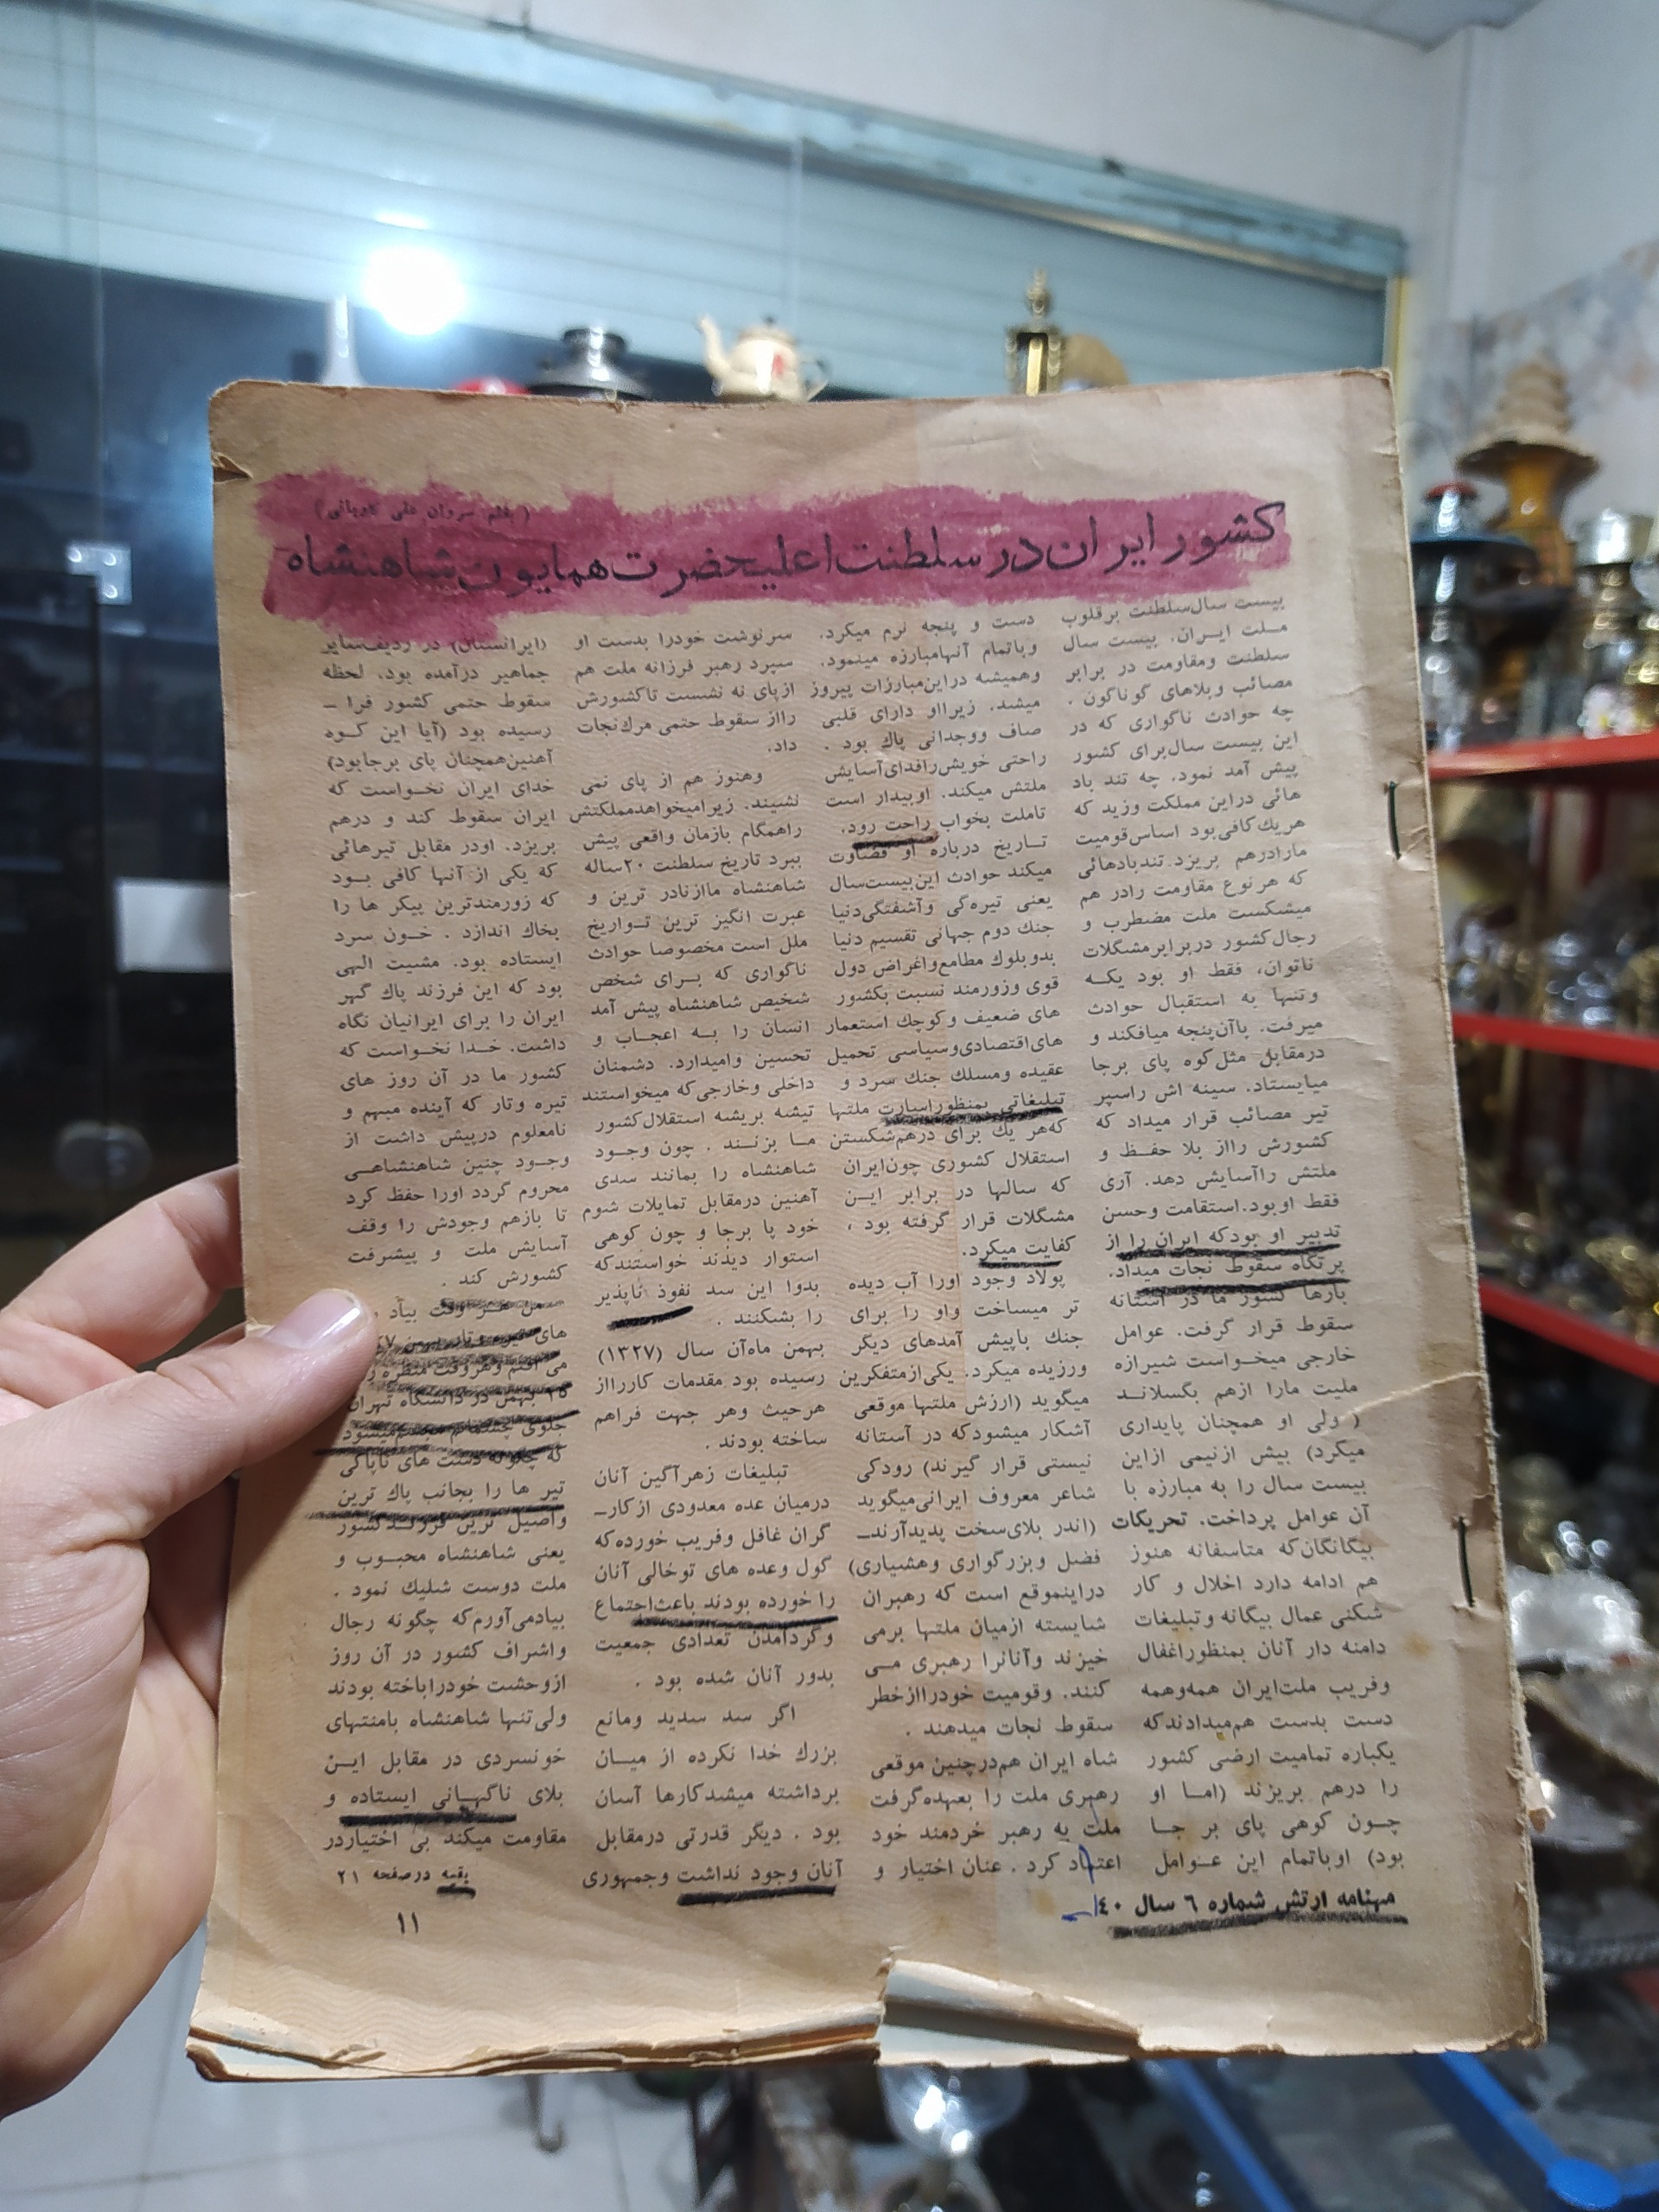 (بقلم سروان علی کاویانی)
کشور ایران در سلطنت اعلیحضرت همایون شاهنشاه
بیست سال سلطنت بر قلوب
ملت ایران. بیست سال
سلطنت ومقاومت در برابر
مصائب وبلاهای گوناگون.
چه حوادث ناگواری که در
این بیست سال برای کشور
پیش آمد نمود. چه تند باد
هائی دراین مملکت وزید که
هریك کافی بود اساس قومیت
مارادرهم بریزد. تندبادهائی
که هر نوع مقاومت رادر هم
میشکست ملت مضطرب و
رجال کشور دربرابر مشگلات
ناتوان، فقط او بود یکه
وتنها به استقبال حوادث
میرفت. باآن پنجه میافکند و
درمقابل مثل کوه پای برجا
میایستاد. سینه اش راسپر
تیر مصائب قرار میداد که
کشورش رااز بلا حفظ و
ملتش راآسایش دهد. آری
فقط اوبود. استقامت وحسن
تدبیر او بود که ایران را از
پرتگاه سقوط نجات میداد.
بارها کشور ما در آستانه
سقوط قرار گرفت. عوامل
خارجی میخواست شیرازه
ملیت مارا ازهم بگسلاند
( ولی او همچنان پایداری
میکرد) بیش ازنیمی ازاین
بیست سال را به مبارزه با
آن عوامل پرداخت. تحریکات
بیگانگان که متاسفانه هنوز
هم ادامه دارد اخلال و کار
شکنی عمال بیگانه وتبلیغات
دامنه دار آنان بمنظوراغفال
وفریب ملت ایران همه وهمه
دست بدست هم میدادند که
یکباره تمامیت ارضی کشور
را درهم بریزند (اما او
چون کوهی پای بر جا
بود) اوباتمام این عوامل
دست و پنجه نرم میکرد.
وباتمام آنهامبارزه مینمود.
وهمیشه دراین مبارزات پیروز
میشد. زیرااو دارای قلبی
صاف ووجدانی پاك بود.
راحتی خویش رافدای آسایش
ملتش میکند. اوبیدار است
تاملت بخواب راحت رود.
تاریخ درباره او قضاوت
میکند حوادث این بیست سال
یعنی تیره گی وآشفتگی دنیا
جنك دوم جهانی تقسیم دنیا
بدوبلوك مطامع واغراض دول
قوی وزورمند نسبت بکشور
های ضعیف و کوچك استعمار
های اقتصادی وسیاسی تحمیل
عقیده ومسلك جنك سرد و
تبلیغاتی بمنظوراسارت ملتها
که هر یك برای درهم شکستن
استقلال کشوری چون ایران
که سالها در برابر این
مشگلات قرار گرفته بود ،
کفایت میکرد.
پولاد وجود اورا آب دیده
تر میساخت واو را برای
جنك باپیش آمدهای دیگر
ورزیده میکرد. یکی از متفکرین
میگوید (ارزش ملتها موقعی
آشکار میشود که در آستانه
نیستی قرار گیرند) رودکی
شاعر معروف ایرانی میگوید
(اندر بلای سخت پدیدآرند ـ
فضل وبزرگواری وهشیاری)
دراینموقع است که رهبران
شایسته ازمیان ملتها برمی
خیزند وآنانرا رهبری می
کنند. وقومیت خودرااز خطر
سقوط نجات میدهند .
شاه ایران هم درچنین موقعی
رهبری ملت را بعهده گرفت
ملت به رهبر خردمند خود
اعتماد کرد. عنان اختیار و
سرنوشت خودرا بدست او
سپرد رهبر فرزانه ملت هم
ازپای نه نشست تاکشورش
رااز سقوط حتمی مرك نجات
داد.
وهنوز هم از پای نمی
نشیند. زیرامیخواهدمملکتش
راهمگام بازمان واقعی پیش
ببرد تاریخ سلطنت ۲۰ ساله
شاهنشاه ماازنادر ترین و
عبرت انگیز ترین تواریخ
ملل است مخصوصا حوادث
ناگواری که برای شخص
شخیص شاهنشاه پیش آمد
انسان را به اعجاب و
تحسین وامیدارد. دشمنان
داخلی وخارجی که میخواستند
تیشه بریشه استقلال کشور
ما بزنند . چون وجود
شاهنشاه را بمانند سدی
آهنین درمقابل تمایلات شوم
خود پا برجا و چون کوهی
استوار دیدند خواستند که
بدوا این سد نفوذ ناپذیر
را بشکنند .
بهمن ماه آن سال (۱۳۲۷)
رسیده بود مقدمات کاررااز
هرحیث وهر جهت فراهم
ساخته بودند .
تبلیغات زهرآگین آنان
درمیان عده معدودی ازکار ـ
گران غافل وفریب خورده که
گول وعده های توخالی آنان
را خورده بودند باعث اجتماع
وگردآمدن تعدادی جمعیت
بدور آنان شده بود .
اگر سد سدید ومانع
بزرك خدا نکرده از میان
برداشته میشد کارها آسان
بود . دیگر قدرتی درمقابل
آنان وجود نداشت وجمهوری
(ایرانستان) در ردیف سایر
جماهیر درآمده بود. لحظه
سقوط حتمی کشور فرا ـ
رسیده بود (آیا این کوه
آهنین همچنان پای برجا بود)
خدای ایران نخواست که
ایران سقوط کند و درهم
بریزد. اودر مقابل تیرهائی
که یکی از آنها کافی بود
که زورمندترین پیکر ها را
بخاك اندازد . خون سرد
ایستاده بود. مشیت الهی
بود که این فرزند پاك گهر
ایران را برای ایرانیان نگاه
داشت. خدا نخواست که
کشور ما در آن روز های
تیره وتار که آینده مبهم و
نامعلوم درپیش داشت از
وجود چنین شاهنشاهی
محروم گردد اورا حفظ کرد
تا بازهم وجودش را وقف
آسایش ملت و پیشرفت
کشورش کند .
من هر وقت بیاد
های تیره وتار بهمن
می افتم وهروقت منظره
۱۵ بهمن در دانشگاه تهران
جلوی چشمانم مجسم میشود
که چگونه دست های ناپاکی
تیر ها را بجانب پاك ترین
واصیل ترین فرزند کشور
یعنی شاهنشاه محبوب و
ملت دوست شلیك نمود .
بیادمی آورم که چگونه رجال
واشراف کشور در آن روز
ازوحشت خودراباخته بودند
ولی تنها شاهنشاه بامنتهای
خونسردی در مقابل این
بلای ناگهانی ایستاده و
مقاومت میکند بی اختیاردر
بقیه درصفحه ۲۱
مهنامه ارتش شماره ۶ سال ۴۰
۱۱